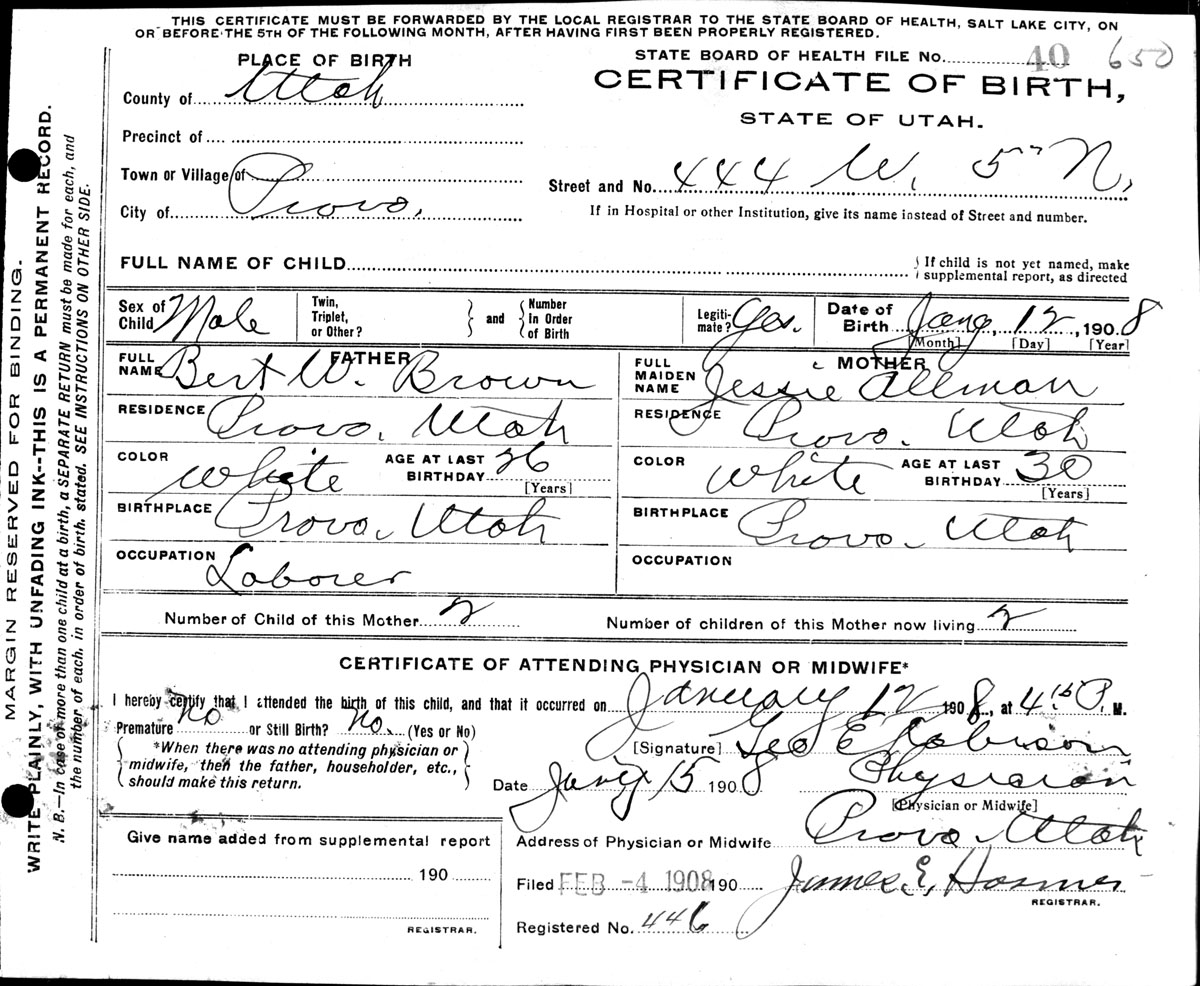 THIS CERTIFICATE MUST BE FORWARDED BY THE LOCAL REGISTRAR TO THE STATE BOARD OF HEALTH, SALT LAKE CITY, ON
OR BEFORE THE 5TH OF THE FOLLOWING MONTH, AFTER HAVING FIRST BEEN PROPERLY REGISTERED.
PLACE OF BIRTH
STATE BOARD OF HEALTH FILE No. 40 650
County of Utah
CERTIFICATE OF BIRTH,
STATE OF UTAH.
Precinct of
Town or Village of
Street and No. 444 W. 5" N.
City of Provo.
If in Hospital or other Institution, give its name instead of Street and number.
FULL NAME OF CHILD
{ If child is not yet named, make
supplemental report, as directed
Sex of Child Male
Twin, Triplet, or Other?
and
Number In Order of Birth
Legiti-mate? Yes.
Date of Birth Jany, 12, 1908
[Month] [Day] [Year]
FATHER
FULL NAME Bert W. Brown
RESIDENCE Provo, Utah
COLOR White
AGE AT LAST BIRTHDAY 26
[Years]
BIRTHPLACE Provo, Utah
OCCUPATION Laborer
MOTHER
FULL MAIDEN NAME Jessie Allman
RESIDENCE Provo. Utah
COLOR White
AGE AT LAST BIRTHDAY 30
[Years]
BIRTHPLACE Provo, Utah
OCCUPATION
Number of Child of this Mother 2
Number of children of this Mother now living 2
CERTIFICATE OF ATTENDING PHYSICIAN OR MIDWIFE*
I hereby certify that I attended the birth of this child, and that it occurred on January 12 1908, at 4:15 P. M.
Premature No or Still Birth? No. (Yes or No)
*When there was no attending physician or
midwife, then the father, householder, etc.,
should make this return.
[Signature] Geo E Robison
Date Jany 15 1908 Physician
[Physician or Midwife]
Address of Physician or Midwife Provo, Utah
Give name added from supplemental report
190
REGISTRAR.
Filed FEB -4 1908 190 James E. Hosmer
REGISTRAR.
Registered No. 446
MARGIN RESERVED FOR BINDING.
WRITE PLAINLY, WITH UNFADING INK--THIS IS A PERMANENT RECORD.
N. B.—In case of more than one child at a birth, a SEPARATE RETURN must be made for each, and
the number of each, in order of birth, stated. SEE INSTRUCTIONS ON OTHER SIDE.